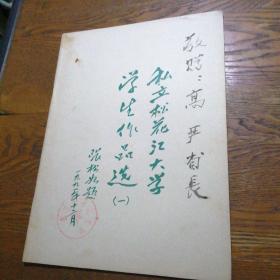 敬赠：高严省長
私立松花江大学
学生作品选
（一）
張松如题
一九九二年十二月